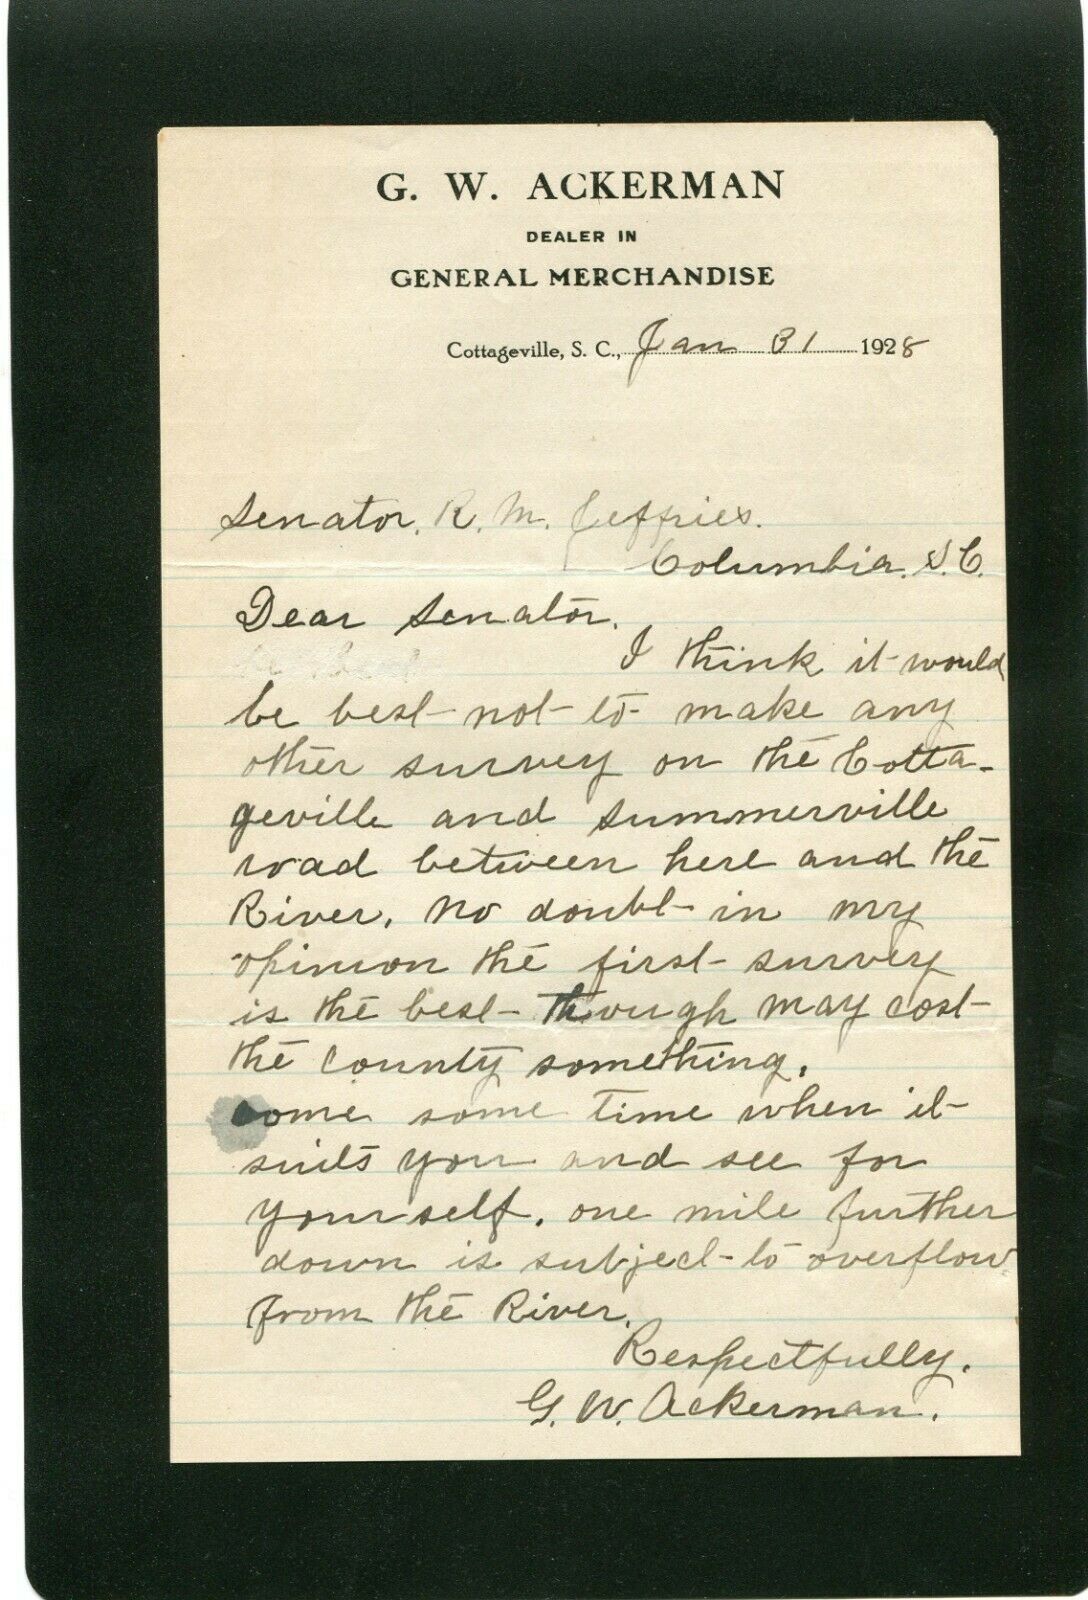 G. W. ACKERMAN
DEALER IN
GENERAL MERCHANDISE
Cottageville, S. C., Jan 31 1928
Senator, R. M. Jeffries.
Columbia. S. C.
Dear Senator.
I think it would
be best not to make any
other survey on the Cotta-
geville and Summerville
road between here and the
River. No doubt in my
opinion the first survey
is the best though may cost
the county something.
Come some time when it
suits you and see for
yourself. one mile further
down is subject to overflow
from the River.
Respectfully.
G. W. Ackerman.